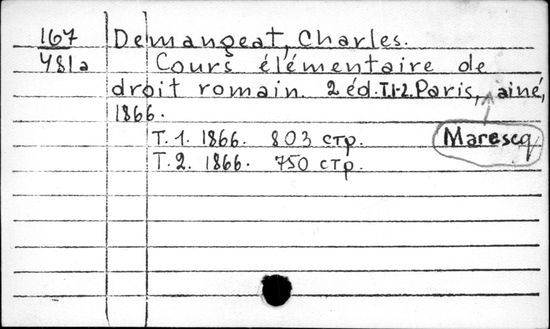 167 Demangeat, Charles.
481a Cours élémentaire de
droit romain. 2 éd. T.1-2. Paris, ainé,
1866.
Marescq
T. 1. 1866. 803 стр.
T. 2. 1866. 750 стр.